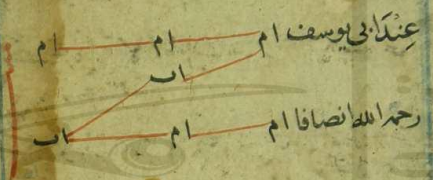 عِنْدَ ابى يوسف ام ام ام
اب
رحمه الله انصافا ام ام اب